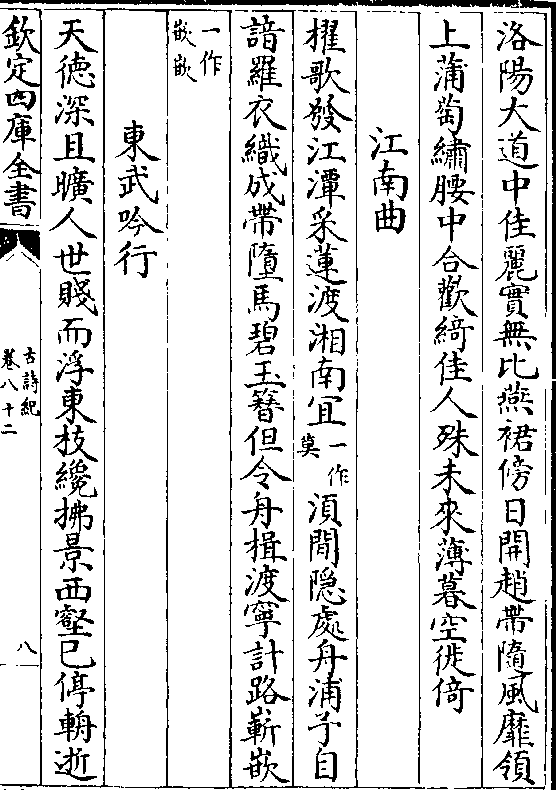 洛陽大道中佳麗實無比燕裙傍日開趙帶隨風靡領
上蒲萄繡腰中合歡綺佳人殊未來薄暮空徙倚
江南曲
櫂歌發江潭采蓮渡湘南宜一作莫須閒隠處舟浦予自
諳羅衣織成帶墮馬碧玉簪但令舟楫渡寧計路嶄嵌
一作嵌嵌
東武吟行
天徳深且曠人世賤而浮東枝纔拂景西壑已停輈逝
欽定四庫全書
古詩紀
卷八十二
八